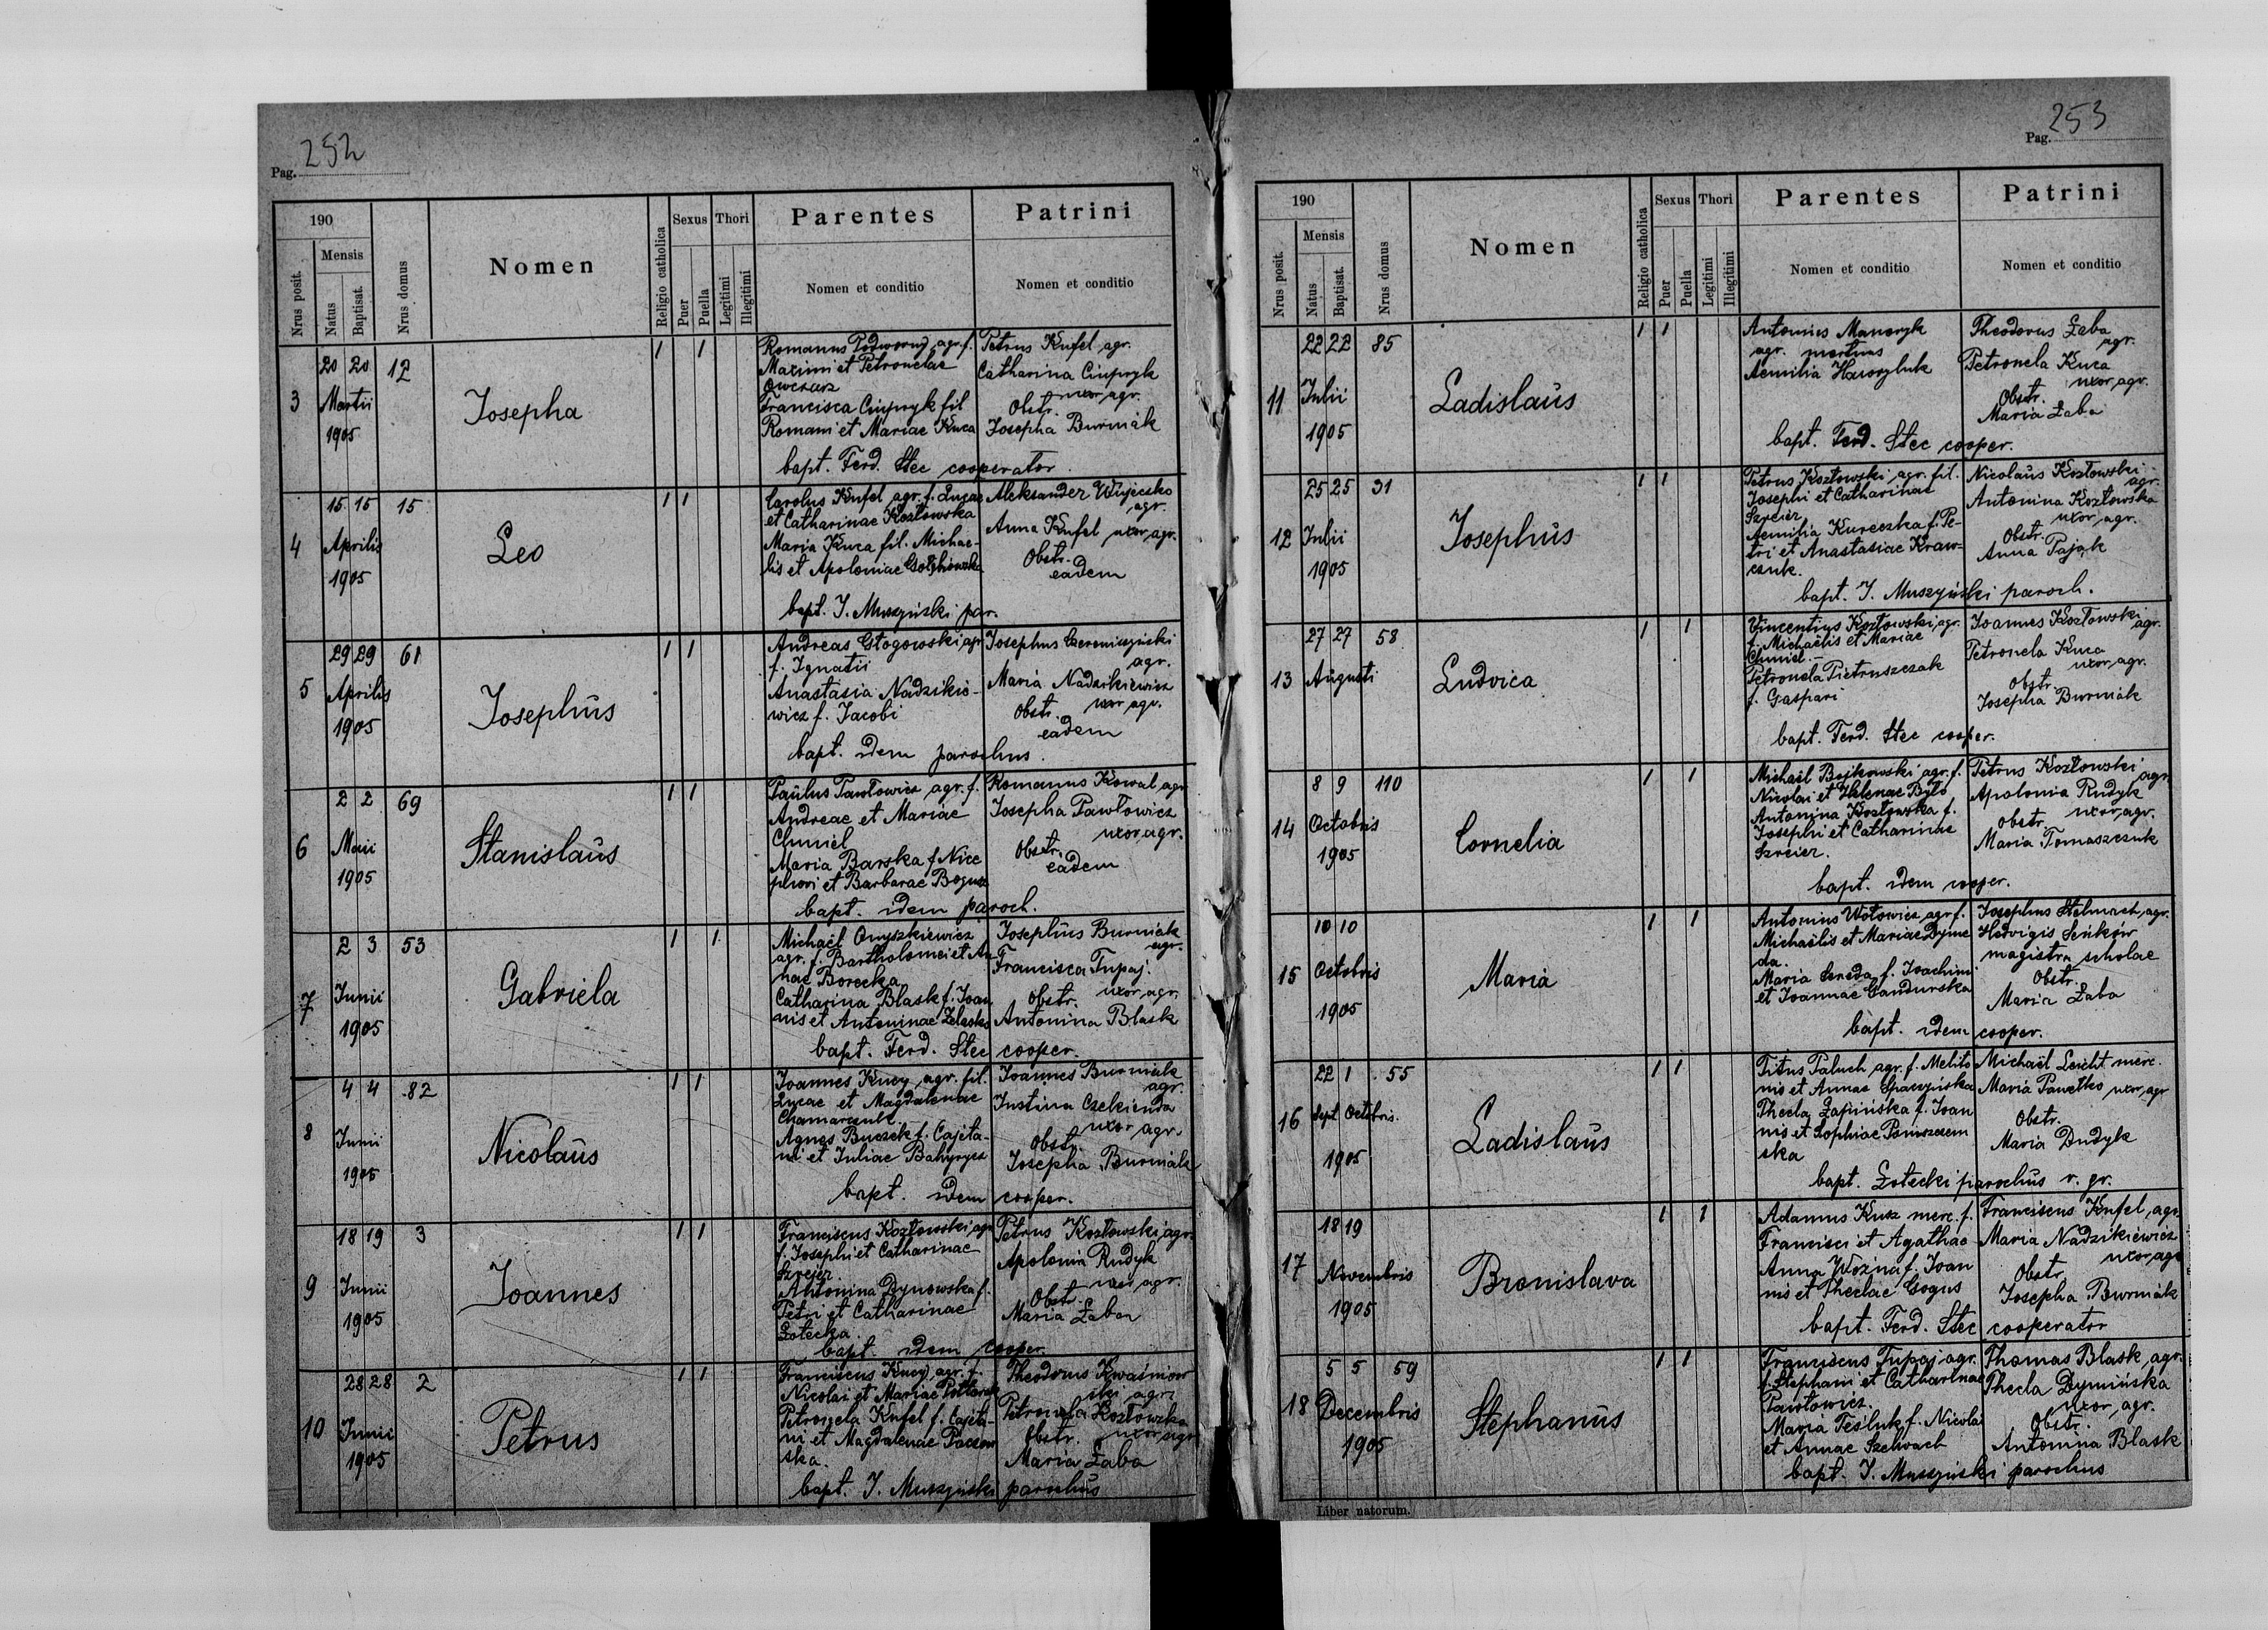 Pag. 252
190
Nrus posit.
Mensis
Natus
Baptisat.
Nrus domus
Nomen
Religio catholica
Sexus
Puer
Puella
Thori
Legitimi
Illegitimi
Parentes
Nomen et conditio
Patrini
Nomen et conditio
3
20 20 12
Martii
1905
Josepha
1 1
Romanus Podworny, agr. f.
Maximi et Petronelae
Owczarz
Francisca Ciupryk fil
Romani et Mariae Kuca
Petrus Kufel agr.
Catharina Ciupryk
uxor agr.
Obstr.
Josepha Burniak
bapt. Ferd. Stec cooperator.
4
15 15 15
Aprilis
1905
Leo
1 1
Carolus Kufel agr. f. Lucae
et Catharinae Kozłowska
Maria Kuca fil. Michae-
lis et Apoloniae
Aleksander Wujeczko
agr.
Anna Kufel uxor agr.
Obstr.
eadem
bapt. J. Muszyński par.
5
29 29 61
Aprilis
1905
Josephus
1 1
Andreas Głogowski agr
f. Ignatii
Anastasia Nadzikie-
wicz f. Jacobi
Josephus
agr.
Maria Nadzikiewicz
uxor agr.
Obstr.
eadem
bapt. idem parochus.
6
2 2 69
Maii
1905
Stanislaus
1 1
Paulus Pawłowicz agr. f.
Andreae et Mariae
Chmiel
Maria Barska f. Nice
phori et Barbarae Bogusz
Romanus Kowal agr
Josepha Pawłowicz
uxor agr.
Obstr.
eadem
bapt. idem paroch.
7
2 3 53
Junii
1905
Gabriela
1 1
Michaël Onyszkiewicz
agr. f. Bartholomei et An
nae Borecka
Catharina Blask f. Joan
nis et Antoninae Żelasko
Josephus Burniak
agr.
Francisca Tupaj.
uxor agr.
Obstr.
Antonina Blask
bapt. Ferd. Stec cooper.
8
4 4 82
Junii
1905
Nicolaus
1 1
Joannes Kucy, agr. fil.
Lucae et Magdalenae
Chamarczuk.
Agnes Buczek f. Cajeta-
ni et Juliae Bahyrycz
Joannes Burniak
agr.
Justina Czekierda
uxor agr.
Obstr.
Josepha Burniak
bapt. idem cooper.
9
18 19 3
Junii
1905
Joannes
1 1
Franciscus Kozłowski agr
f. Josephi et Catharinae
Szreier.
Antonina Dynowska f.
Petri et Catharinae
Łotecka.
Petrus Kozłowski agr.
Apolonia Rudyk
uxor agr.
Obstr.
Maria Żaba
bapt. idem cooper.
10
28 28 2
Junii
1905
Petrus
1 1
Franciscus Kucy, agr. f.
Nicolai et Mariae
Petronela Kufel f. Cajeta-
ni et Magdalenae Paczow
ska.
Theodorus Kwaśniow
ski agr.
Petronela Kozłowska
uxor agr
Obstr.
Maria Żaba
bapt. J. Muszyński parochus
Pag. 253
190
Nrus posit.
Mensis
Natus
Baptisat.
Nrus domus
Nomen
Religio catholica
Sexus
Puer
Puella
Thori
Legitimi
Illegitimi
Parentes
Nomen et conditio
Patrini
Nomen et conditio
11
22 22 85
Julii
1905
Ladislaus
1 1
Antonius Manoryk
agr. mortuus
Aemilia Hawryluk
Theodorus Żaba
agr.
Petronela Kuca
uxor agr.
Obstr.
Maria Żaba
bapt. Ferd. Stec cooper.
12
25 25 31
Julii
1905
Josephus
1 1
Petrus Kozłowski agr. fil.
Josephi et Catharinae
Szreier
Aemilia Kureczka f. Pe-
tri et Anastasiae Kraw-
czuk.
Nicolaus Kozłowski
agr.
Antonina Kozłowska
uxor agr.
Obstr.
Anna Pająk
bapt. J. Muszyński paroch.
13
27 27 58
Augusti
Ludvica
1 1
Vincentius Kozłowski, agr.
f. Michaëlis et Mariae
Chmiel.-
Petronela Pietruszczak
f. Gaspari
Joannes Kozłowski
agr.
Petronela Kuca
uxor agr.
Obstr.
Josepha Burniak
bapt. Ferd. Stec cooper.
14
8 9 110
Octobris
1905
Cornelia
1 1
Michaël Bojkowski agr. f.
Nicolai et Helenae Było
Antonina Kozłowska f.
Josephi et Catharinae
Szreier.
Petrus Kozłowski
agr.
Apolonia Rudyk
uxor agr.
Obstr.
Maria Tomaszczuk
bapt. idem cooper.
15
10 10
Octobris
1905
Maria
1 1
Antonius Wołowicz, agr. f.
Michaëlis et Mariae Dyme
da.
Maria Sereda f. Joachimi
et Joannae Gandurska
Josephus Stelmach, agr.
Hedvigis Seńków
magistra scholae
Obstr.
Maria Żaba
bapt. idem cooper.
16
22 1 55
Sept. Octobris.
1905
Ladislaus
1 1
Titus Paluch agr. f. Melito
nis et Annae Spaczyńska
Thecla Łapińska f. Joan
nis et Sophiae Pomszczem
ska
Michaël Leicht merc.
Maria Pawełko uxor agr
Obstr.
Maria Dudyk
bapt. Łotecki parochus r. gr.
17
18 19
Novembris
1905
Bronislava
1 1
Adamus Kusz merc. f.
Francisci et Agathae
Anna Woźna f. Joan
nis et Theclae Gogus
Franciscus Kufel, agr
Maria Nadzikiewicz
uxor agr
Obstr.
Josepha Burniak
bapt. Ferd. Stec cooperator
18
5 5 59
Decembris
1905
Stephanus
1 1
Franciscus Tupaj agr.
f. Stephani et Catharinae
Pawłowicz.
Maria Teśluk f. Nicolai
et Annae Szeliwach
Thomas Blask, agr.
Thecla Dymińska
uxor agr.
Obstr.
Antonina Blask
bapt. J. Muszyński parochus
Liber natorum.